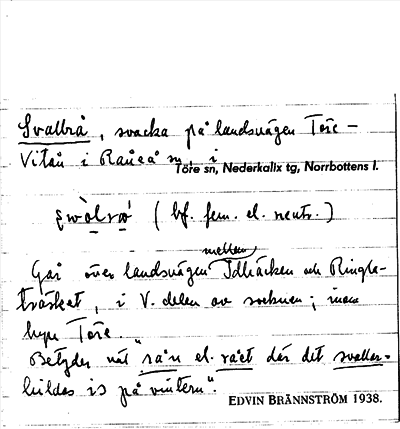 Svalbrå, svacka på landsvägen Töre -
Vitån i Råneå sn, i
Töre sn, Nederkalix tg, Norrbottens l.
(bf. fem. el. neutr.)
mellan
Går över landsvägen Idbäcken och Ringla-
träsket, i V. delen av socknen; inom
byn Töre.
Betyder nåt "rå'n el. rået där det svallar-
bildas is på vintern".
EDVIN BRÄNNSTRÖM 1938.